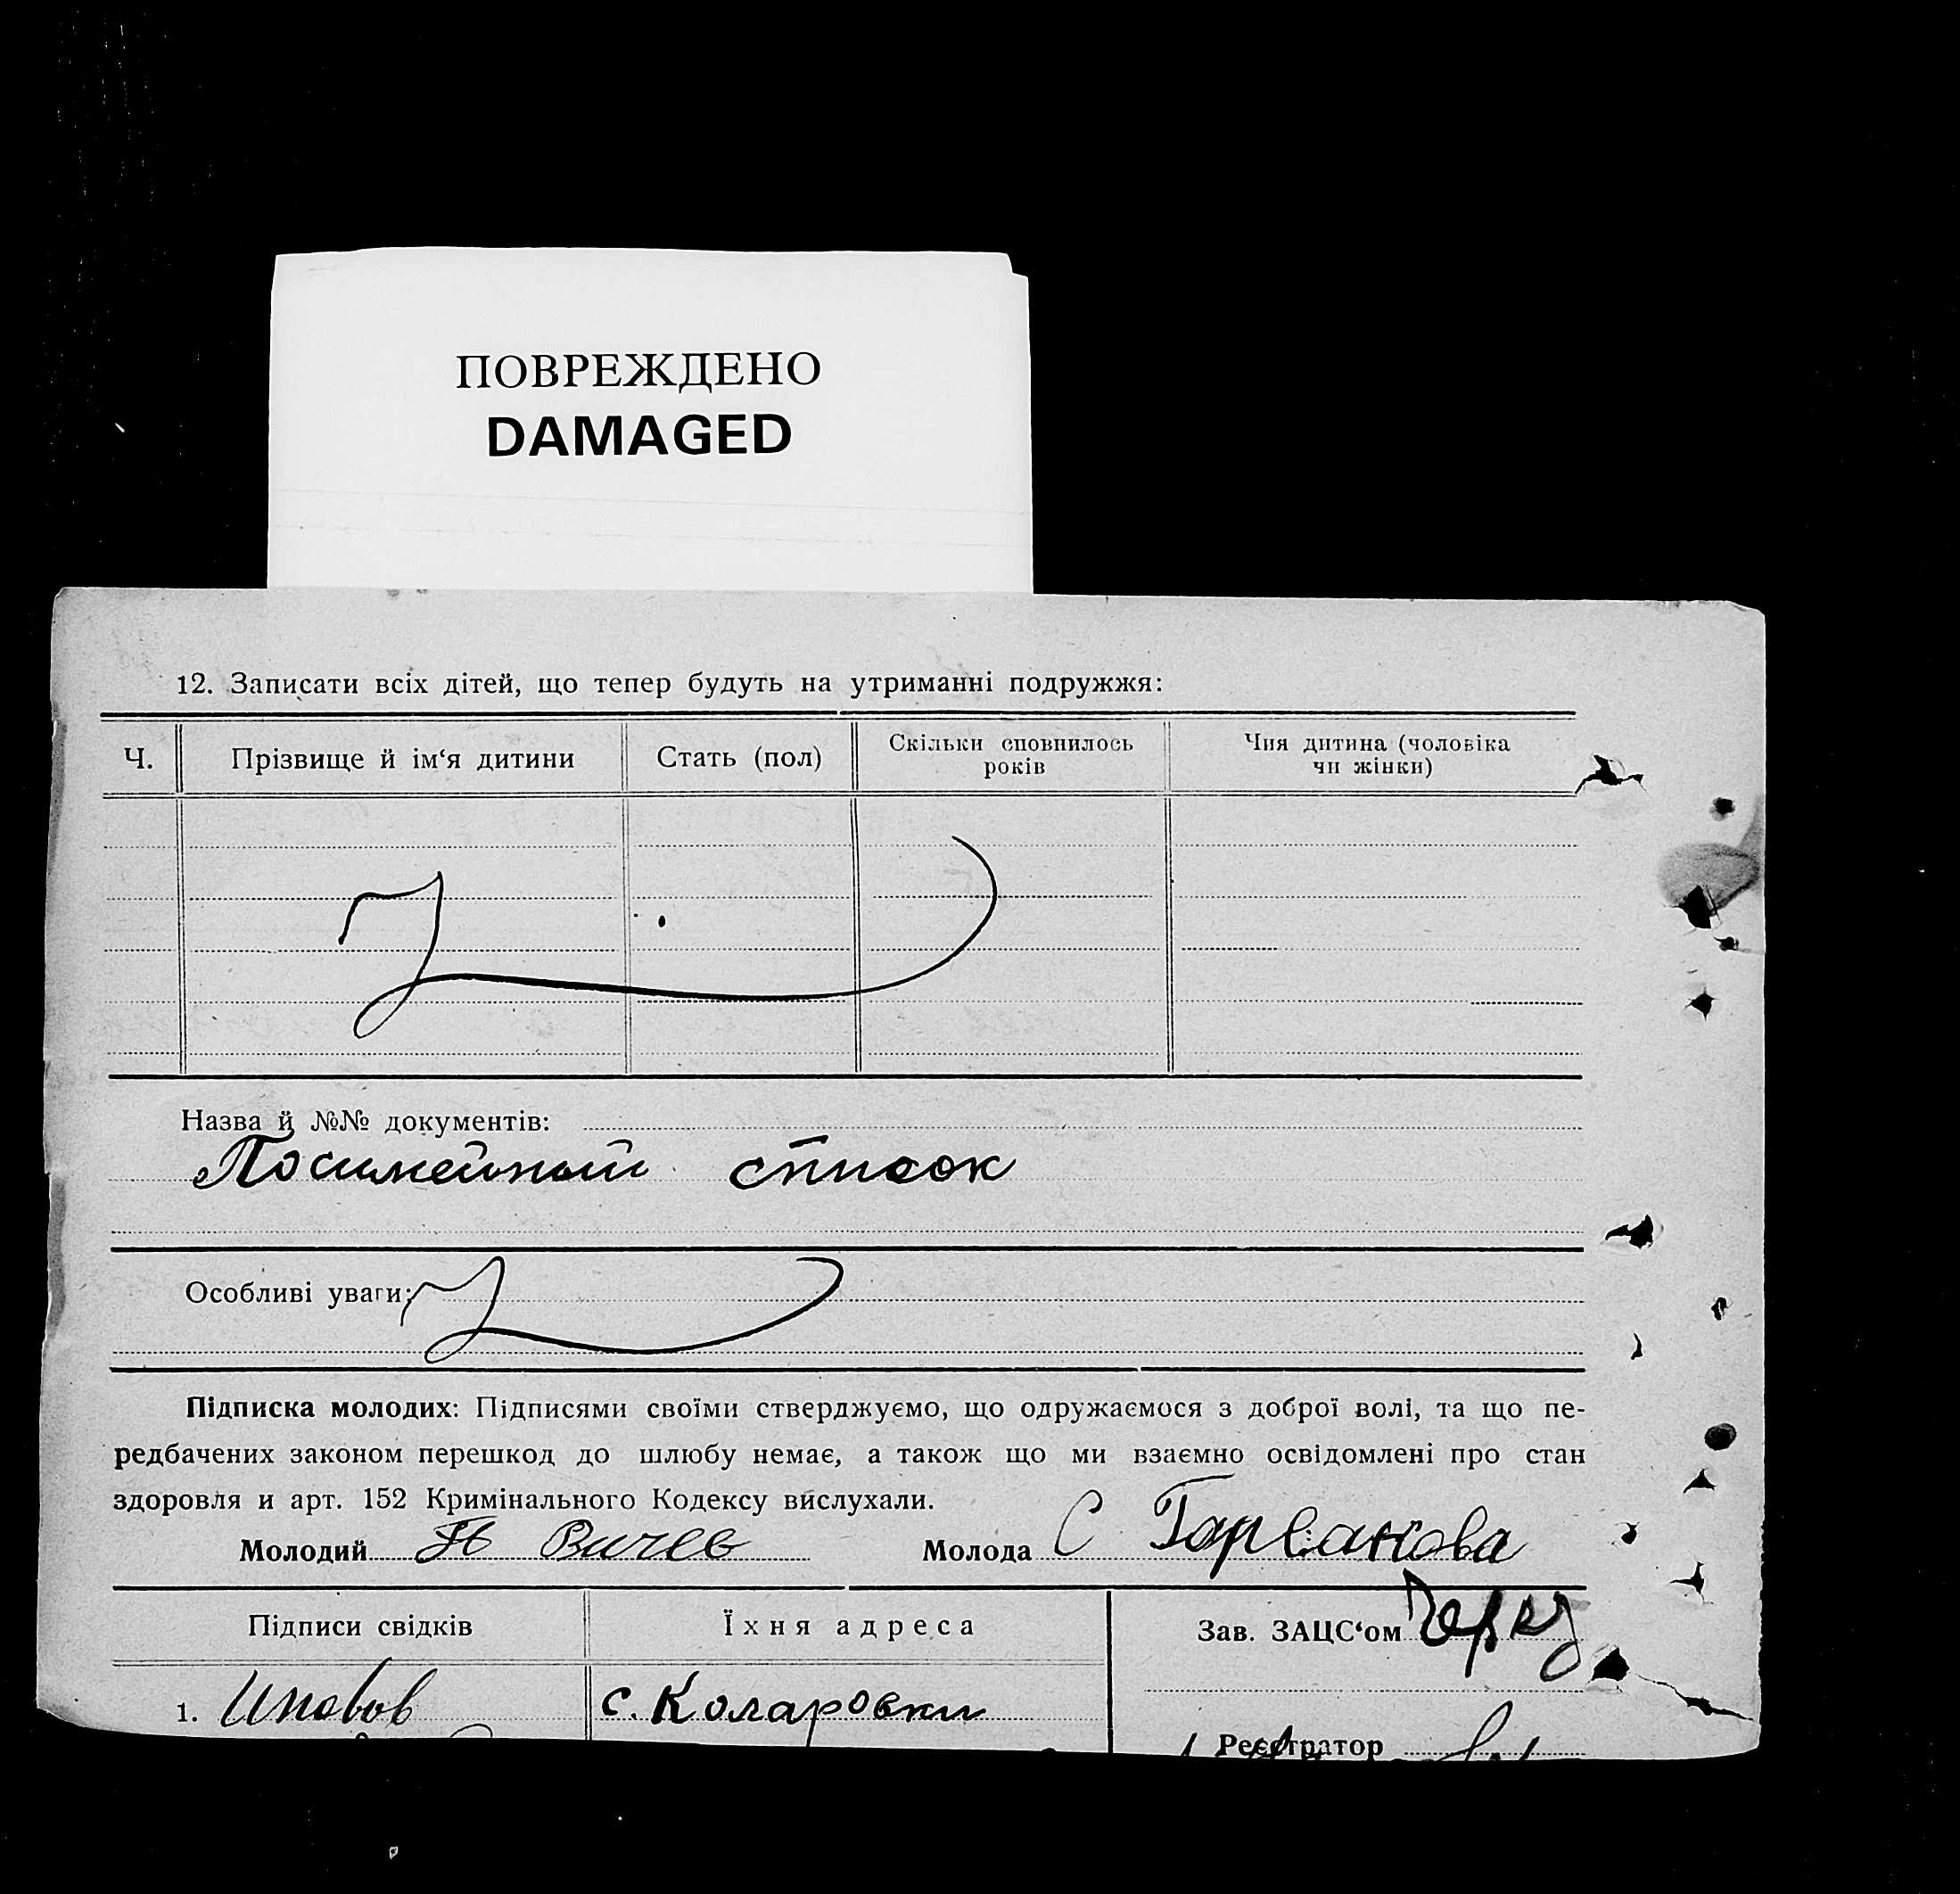 ПОВРЕЖДЕНО
DAMAGED
12. Записати всіх дітей, що тепер будуть на утриманні подружжя:
Ч.
Прізвище й ім‘я дитини
Стать (пол)
Скільки сповнилось
років
Чия дитина (чоловіка
чи жінки)
Назва й №№ документів:
Посимейный список
Особливі уваги:
Підписка молодих: Підписями своїми стверджуємо, що одружаємося з доброї волі, та що пе-
редбачених законом перешкод до шлюбу немає, а також що ми взаємно освідомлені про стан
здоровля и арт. 152 Кримінального Кодексу вислухали.
Молодий Вичев Молода С Гарванова
Підписи свідків
Їхня адреса
Зав. ЗАЦС‘ом
1.
с. Коларовки
Реєстратор